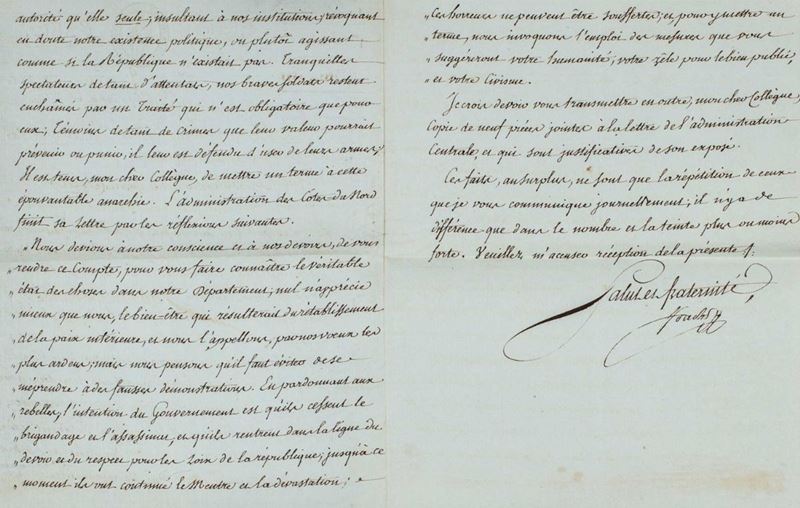 autorité qu'elle seule; insultant à nos institutions; révoquant
en doute notre existence politique, ou plutôt agissant
comme si la République n'existait pas. Tranquilles
spectateurs de tant d'attentats, nos braves soldats restent
enchainés par un Traité qui n'est obligatoire que pour
eux; Témoins de tant de Crimes que leur valeur pourrait
prévenir ou punir, il leur est défendu d'user de leurs armes;
Il est tems, mon cher Collègue, de mettre un terme à cette
épouvantable anarchie. L'administration des Cotes du Nord
finit sa Lettre par les réflexions suivantes.
"Nous devions à notre conscience et à nos devoirs, de vous
"rendre ce Compte, pour vous faire connaître le véritable
"état des choses dans notre Département; nul n'apprécie
"mieux que nous, le bien-être qui résulterait du rétablissement
"de la paix intérieure, et nous l'appellons, par nos voeux les
"plus ardens; mais nous pensons qu'il faut éviter de se
"méprendre à des fausses démonstrations. En pardonnant aux
"rebelles, l'intention du Gouvernement est qu'ils cessent le
"brigandage et l'assassinat, et qu'ils rentrent dans la ligne du
"devoir et du respect pour les Loix de la république; jusqu'à ce
"moment ils ont continué le Meurtre et la dévastation;
"Ces horreurs ne peuvent être souffertes; et pour y mettre un
"terme, nous invoquons l'emploi des mesures que vous
"suggéreront votre humanité, votre zèle pour le bien public,
"et votre Civisme.
Je crois devoir vous transmettre en outre, mon cher Collègue,
Copie de neuf pièces jointes à la lettre de l'administration
Centrale, et qui sont justificatives de son exposé.
Ces faits, au surplus, ne sont que la répétition de ceux
que je vous communique journellement; il n'y a de
différence que dans le nombre et la teinte plus ou moins
forte. Veuillez m'accuser réception de la présente
Salut et fraternité,